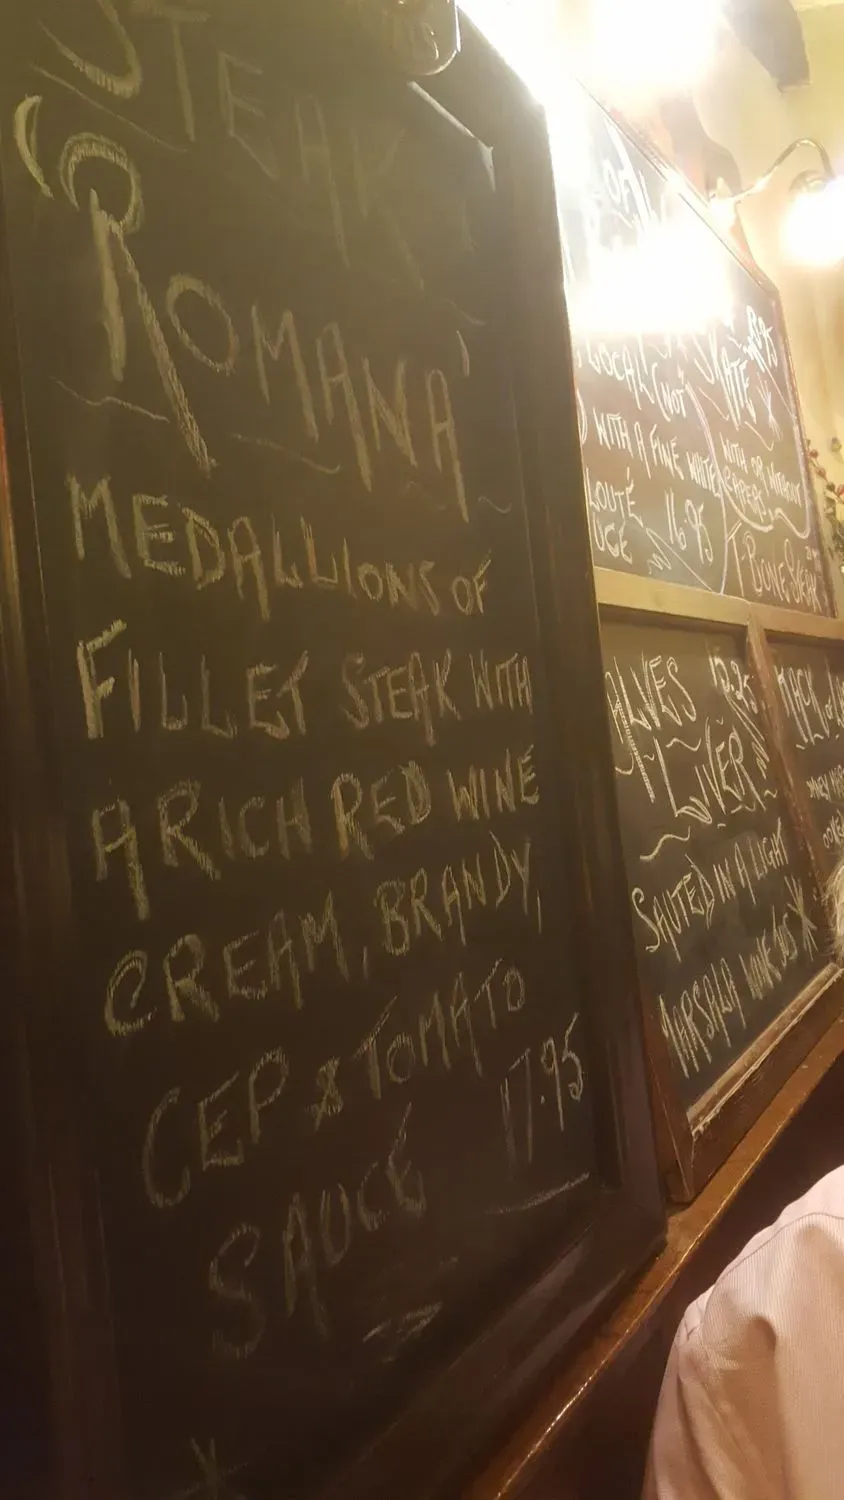 STEAK
'ROMANA'
MEDALLIONS OF
FILLET STEAK WITH
A RICH RED WINE
CREAM, BRANDY,
CEP & TOMATO
SAUCE 17.95
LOCAL (NOT
WITH A FINE WHITE
16.95
SKATE
WITH OR WITHOUT
T. BONE STEAK
ALVES 12.25
LIVER
SAUTED IN A LIGHT
MARSALA WINE